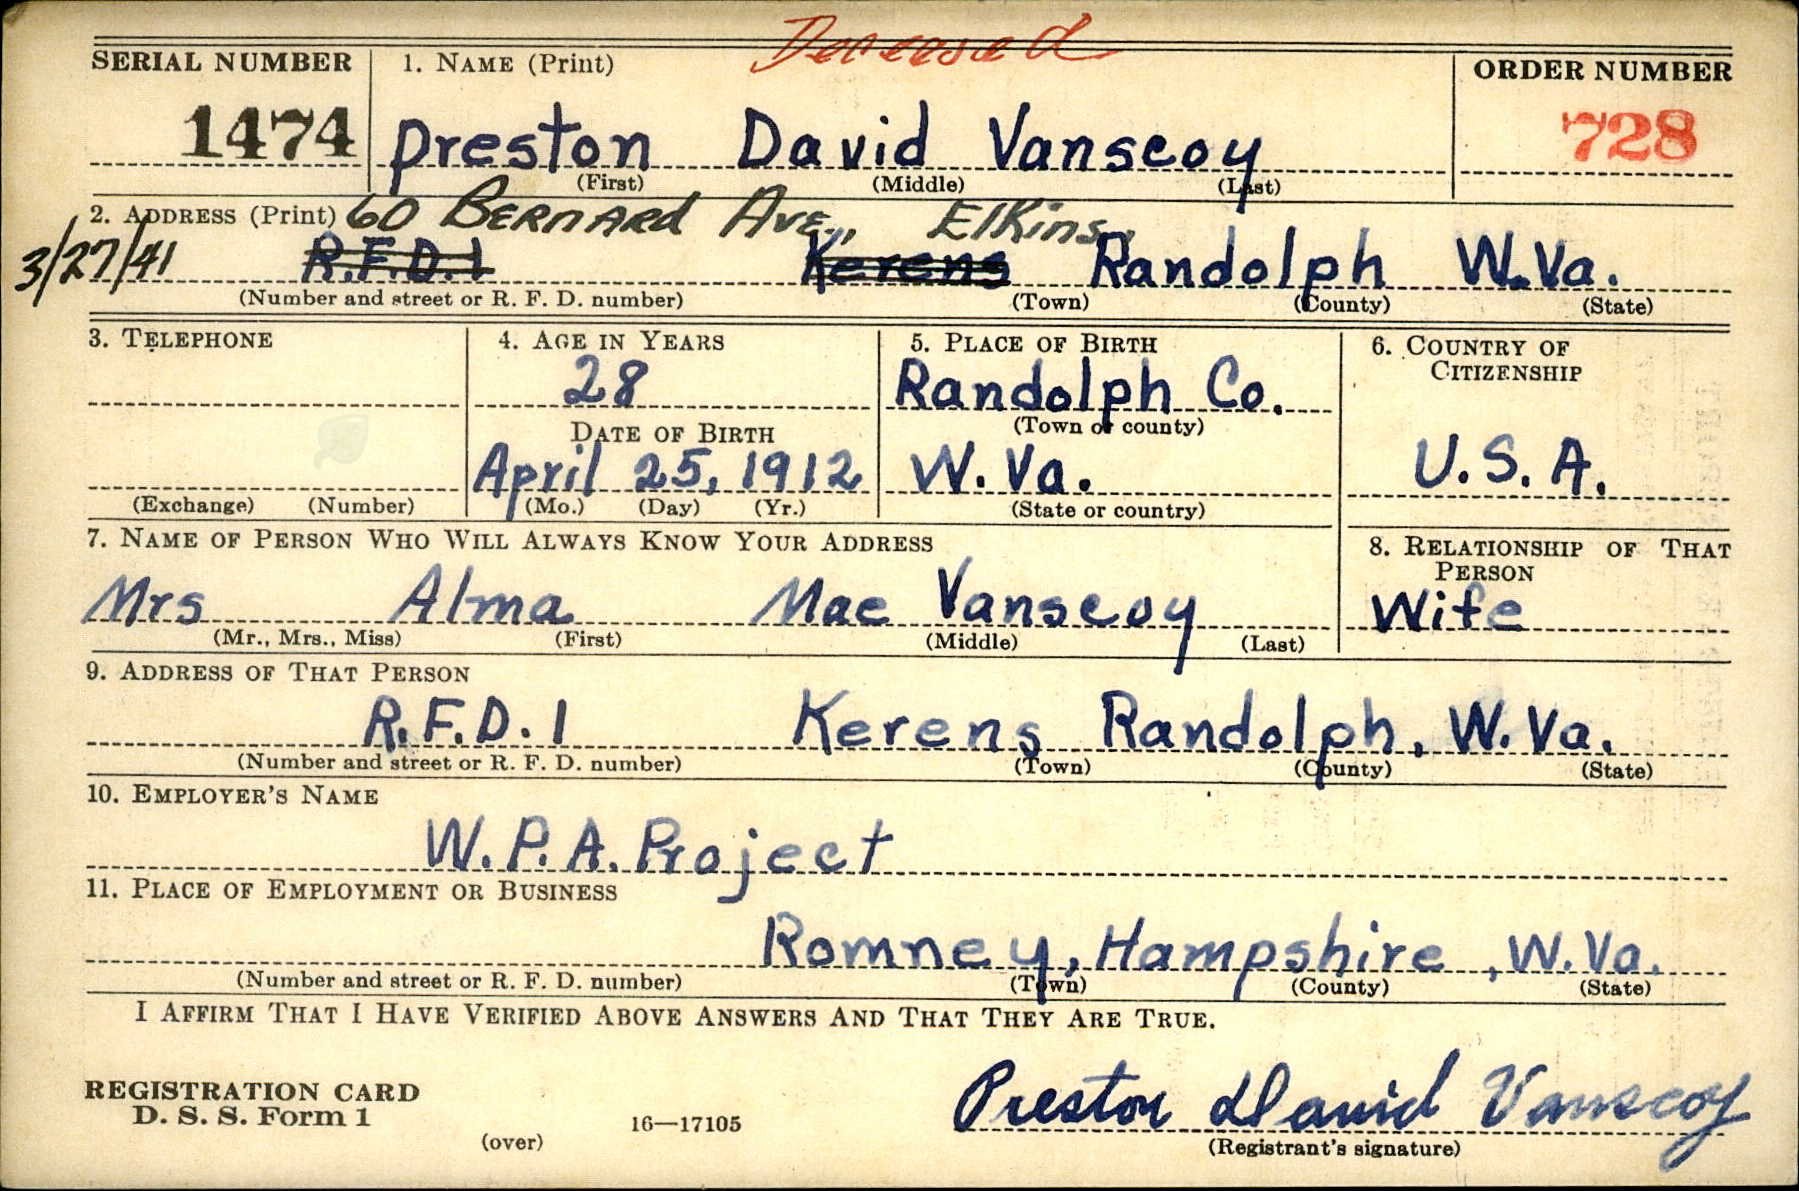 Deceased
SERIAL NUMBER 1. NAME (Print) ORDER NUMBER
1474 Preston David Vanscoy 728
(First) (Middle) (Last)
2. ADDRESS (Print) 60 BERNARD AVE., Elkins,
3/27/41 R.F.D.1 Kerens Randolph W.Va.
(Number and street or R. F. D. number) (Town) (County) (State)
3. TELEPHONE 4. AGE IN YEARS 5. PLACE OF BIRTH 6. COUNTRY OF
CITIZENSHIP
28 Randolph Co.
DATE OF BIRTH (Town or county)
April 25, 1912 W. Va. U.S.A.
(Exchange) (Number) (Mo.) (Day) (Yr.) (State or country)
7. NAME OF PERSON WHO WILL ALWAYS KNOW YOUR ADDRESS 8. RELATIONSHIP OF THAT
PERSON
Mrs Alma Mae Vanscoy Wife
(Mr., Mrs., Miss) (First) (Middle) (Last)
9. ADDRESS OF THAT PERSON
R.F.D. 1 Kerens Randolph, W. Va.
(Number and street or R. F. D. number) (Town) (County) (State)
10. EMPLOYER'S NAME
W.P.A. Project
11. PLACE OF EMPLOYMENT OR BUSINESS
Romney, Hampshire, W.Va.
(Number and street or R. F. D. number) (Town) (County) (State)
I AFFIRM THAT I HAVE VERIFIED ABOVE ANSWERS AND THAT THEY ARE TRUE.
REGISTRATION CARD Preston David Vanscoy
D. S. S. Form 1 16—17105
(over) (Registrant's signature)